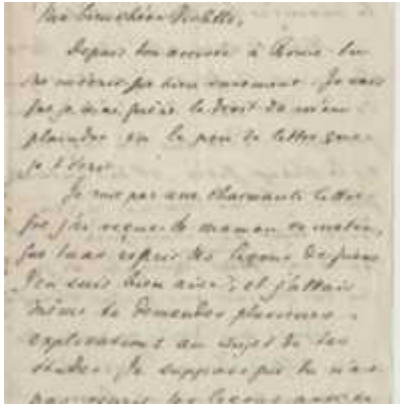 Ma bien chère Violette,
Depuis ton arrivée à Rome tu
ne m'écris que bien rarement. Je sais
que je n'ai guère le droit de m'en
plaindre vu le peu de lettres que
je t'écris.
Je vois par une charmante lettre
que j'ai reçue de maman ce matin,
que tu as repris des leçons de
J'en suis bien aise, et j'allais
même te demander plusieurs
explications au sujet de tes
études. Je suppose que tu n'as
pas repris les leçons avec